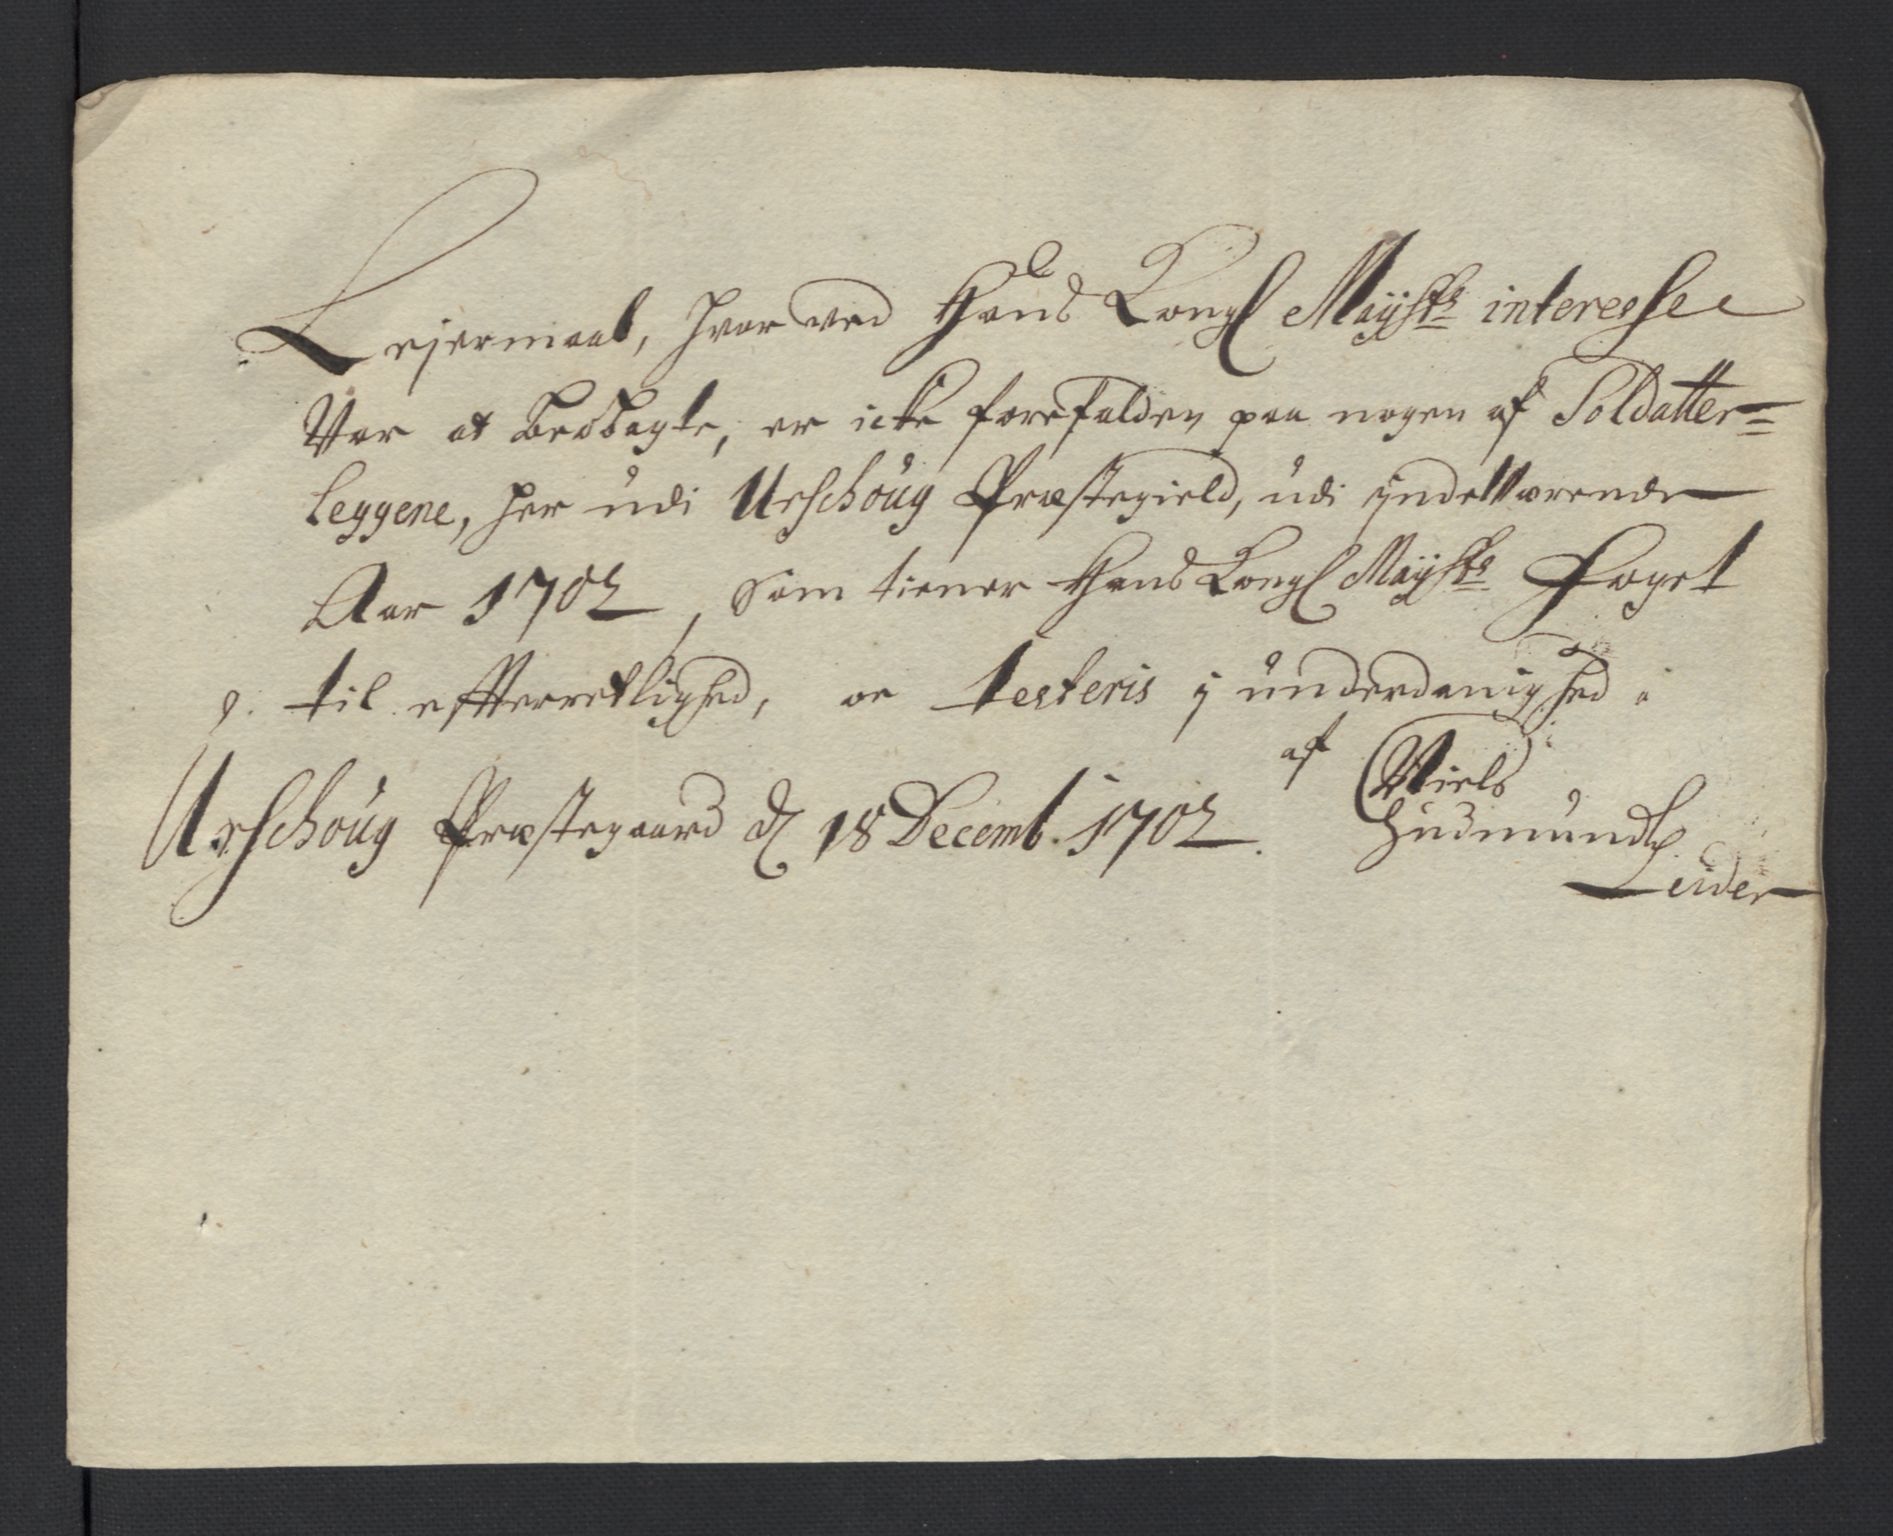 Lejermaal, hvor ved Hans Kongl Mayists interesse
Var at beobagte, er icke forefalden paa nogen af Soldatter=
leggene, her udi Urschoug Præstegield, udi indeværende
Aar 1702, som tiener Hans Kongl Mayists Foget
til effterretlighed, oc testeris i underdanighed
af Niels
Urschoug Præstegaard d 18 Decemb. 1702. Gudmundss
Leider